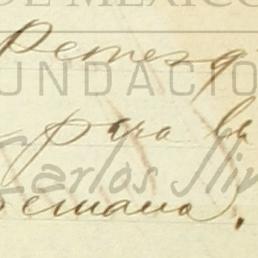 DE MÉXICO
FUNDACIÓN
para la
Carlos Slim
semana.